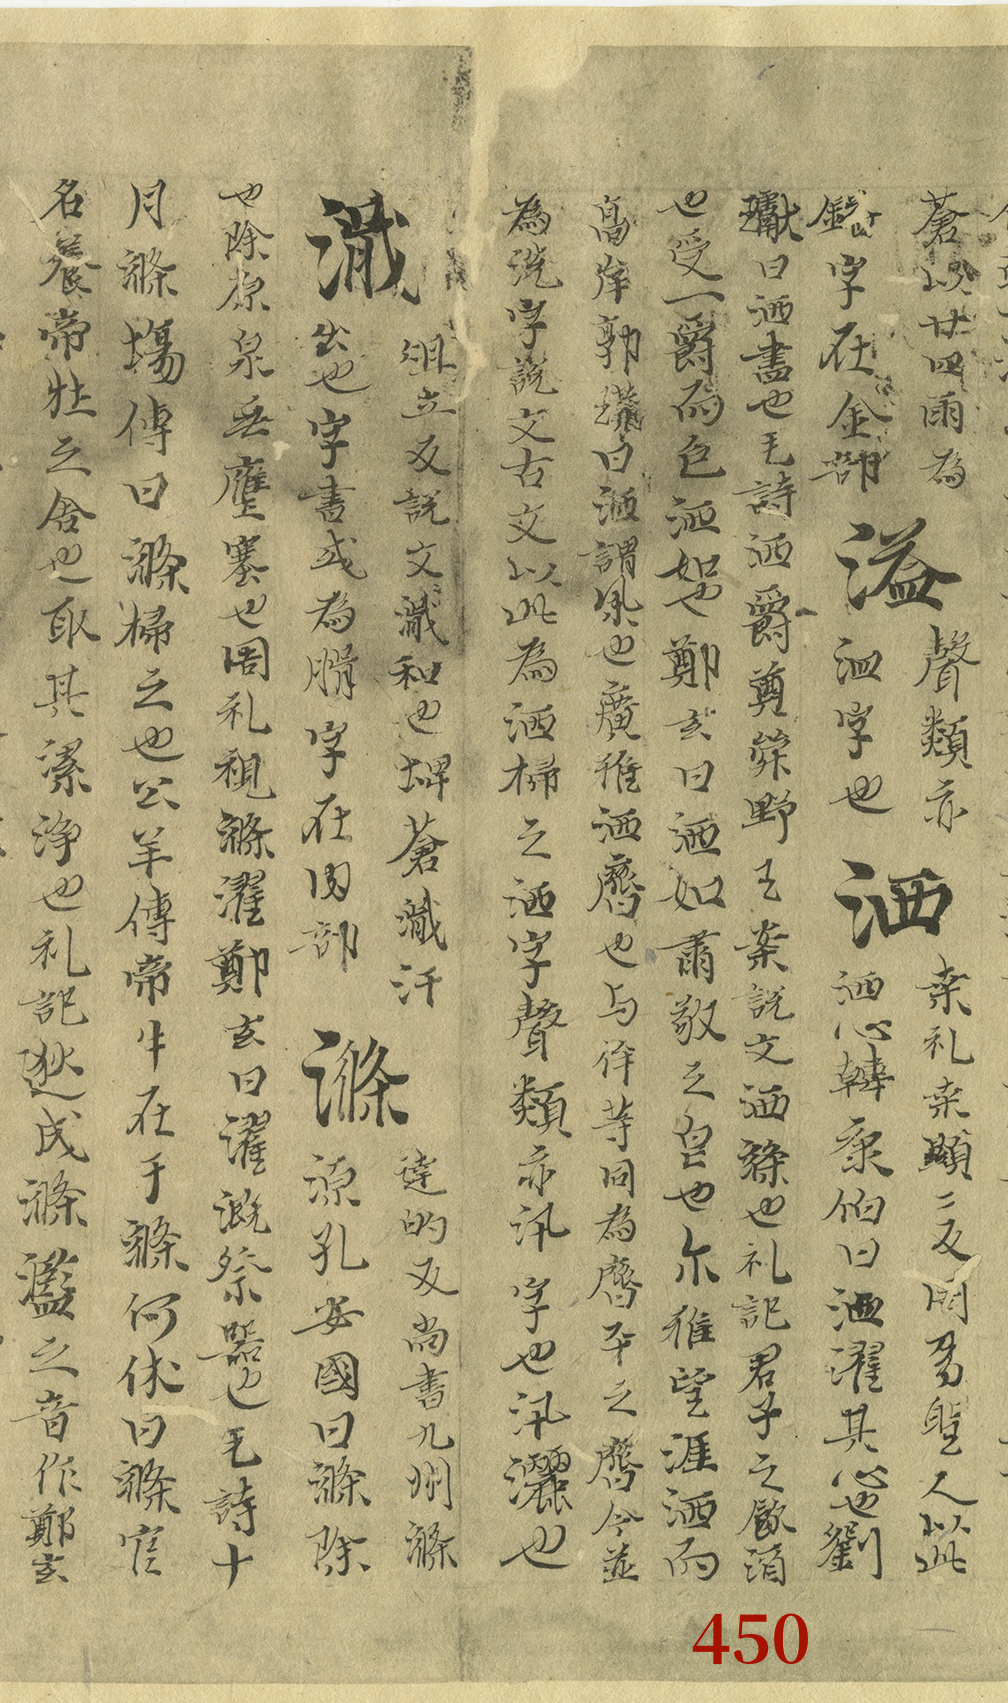 蒼以廿四兩為
鎰字在金部
溢
聲類亦
洫字也
洒
桒礼桒顯二反周易聖人以此
洒心韓康伯曰洒濯其心也劉
瓛曰洒盡也毛詩洒爵奠斝野王案說文洒滌也礼記君子之飲酒
也受一爵而色洒如也鄭玄曰洒如肅敬之皃也尒雅望涯洒而
高岸郭璞曰洒謂也廣雅洒齊也与等同為齊平之齊今並
為洗字說文古文以此為洒掃之洒字聲類亦汛字也汛灑也
濈
俎立反說文濈和也埤蒼濈汗
出也字書或為字在肉部
滌
達的反尚書九州滌
源孔安國曰滌除
也除原泉無壅塞也周礼視滌濯鄭玄曰濯溉祭器也毛詩十
月滌場傳曰滌掃之也公羊傳帝牛在于滌何休曰滌官
名養帝牲之舍也取其潔浄也礼記狄成滌濫之音作鄭玄
450